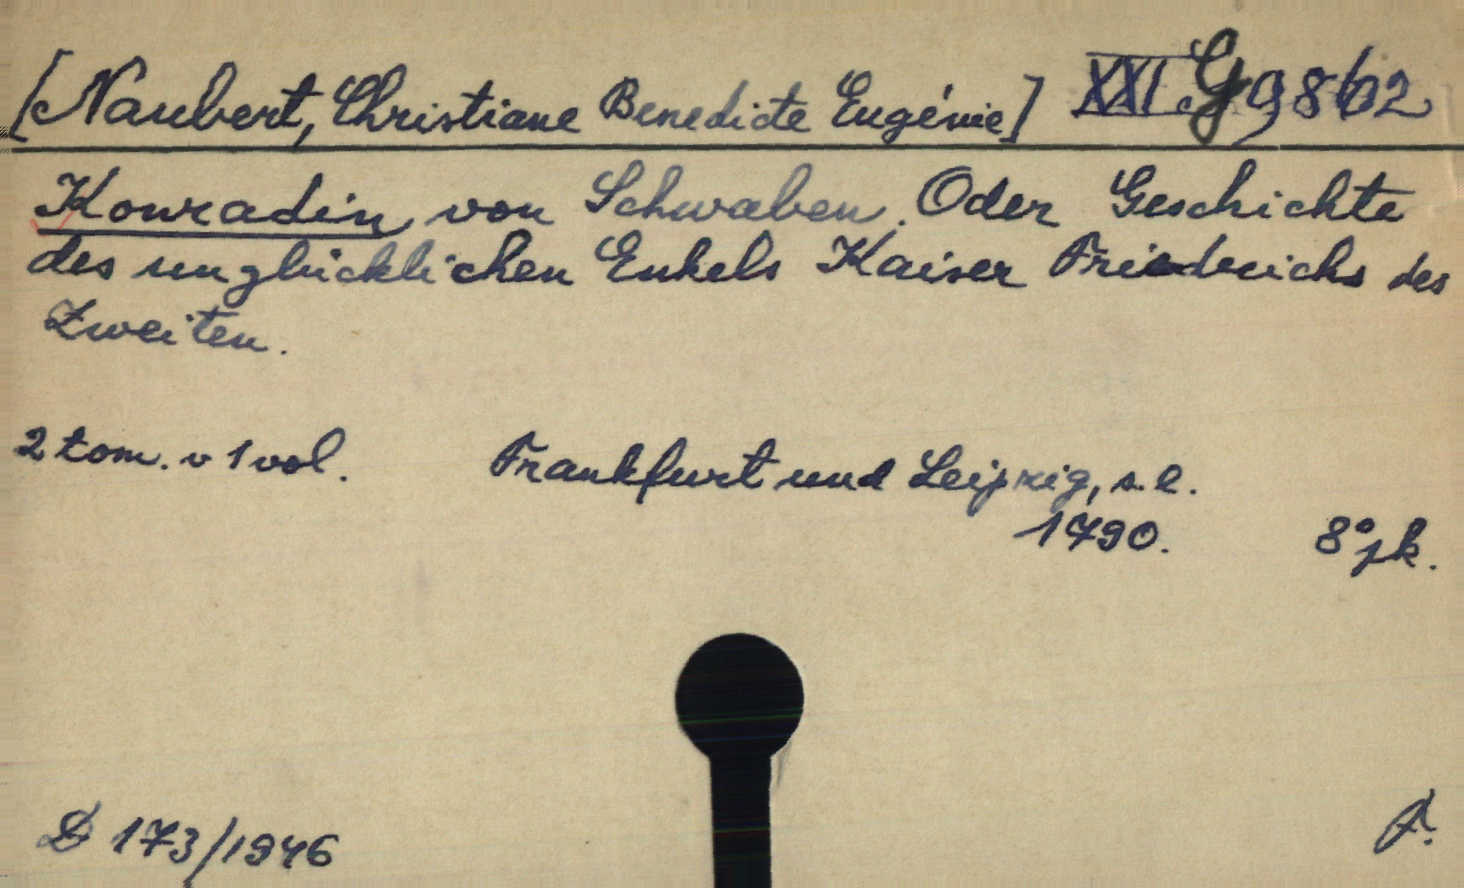 [Naubert, Christiane Benedicte Eugénie] XXI G 9862
Konradin von Schwaben. Oder Geschichte
des unglücklichen Enkels Kaiser Friedrichs des
Zweiten.
2 tom. v 1 vol. Frankfurt und Leipzig, s. e.
1790. 8° pk.
D 173/1946